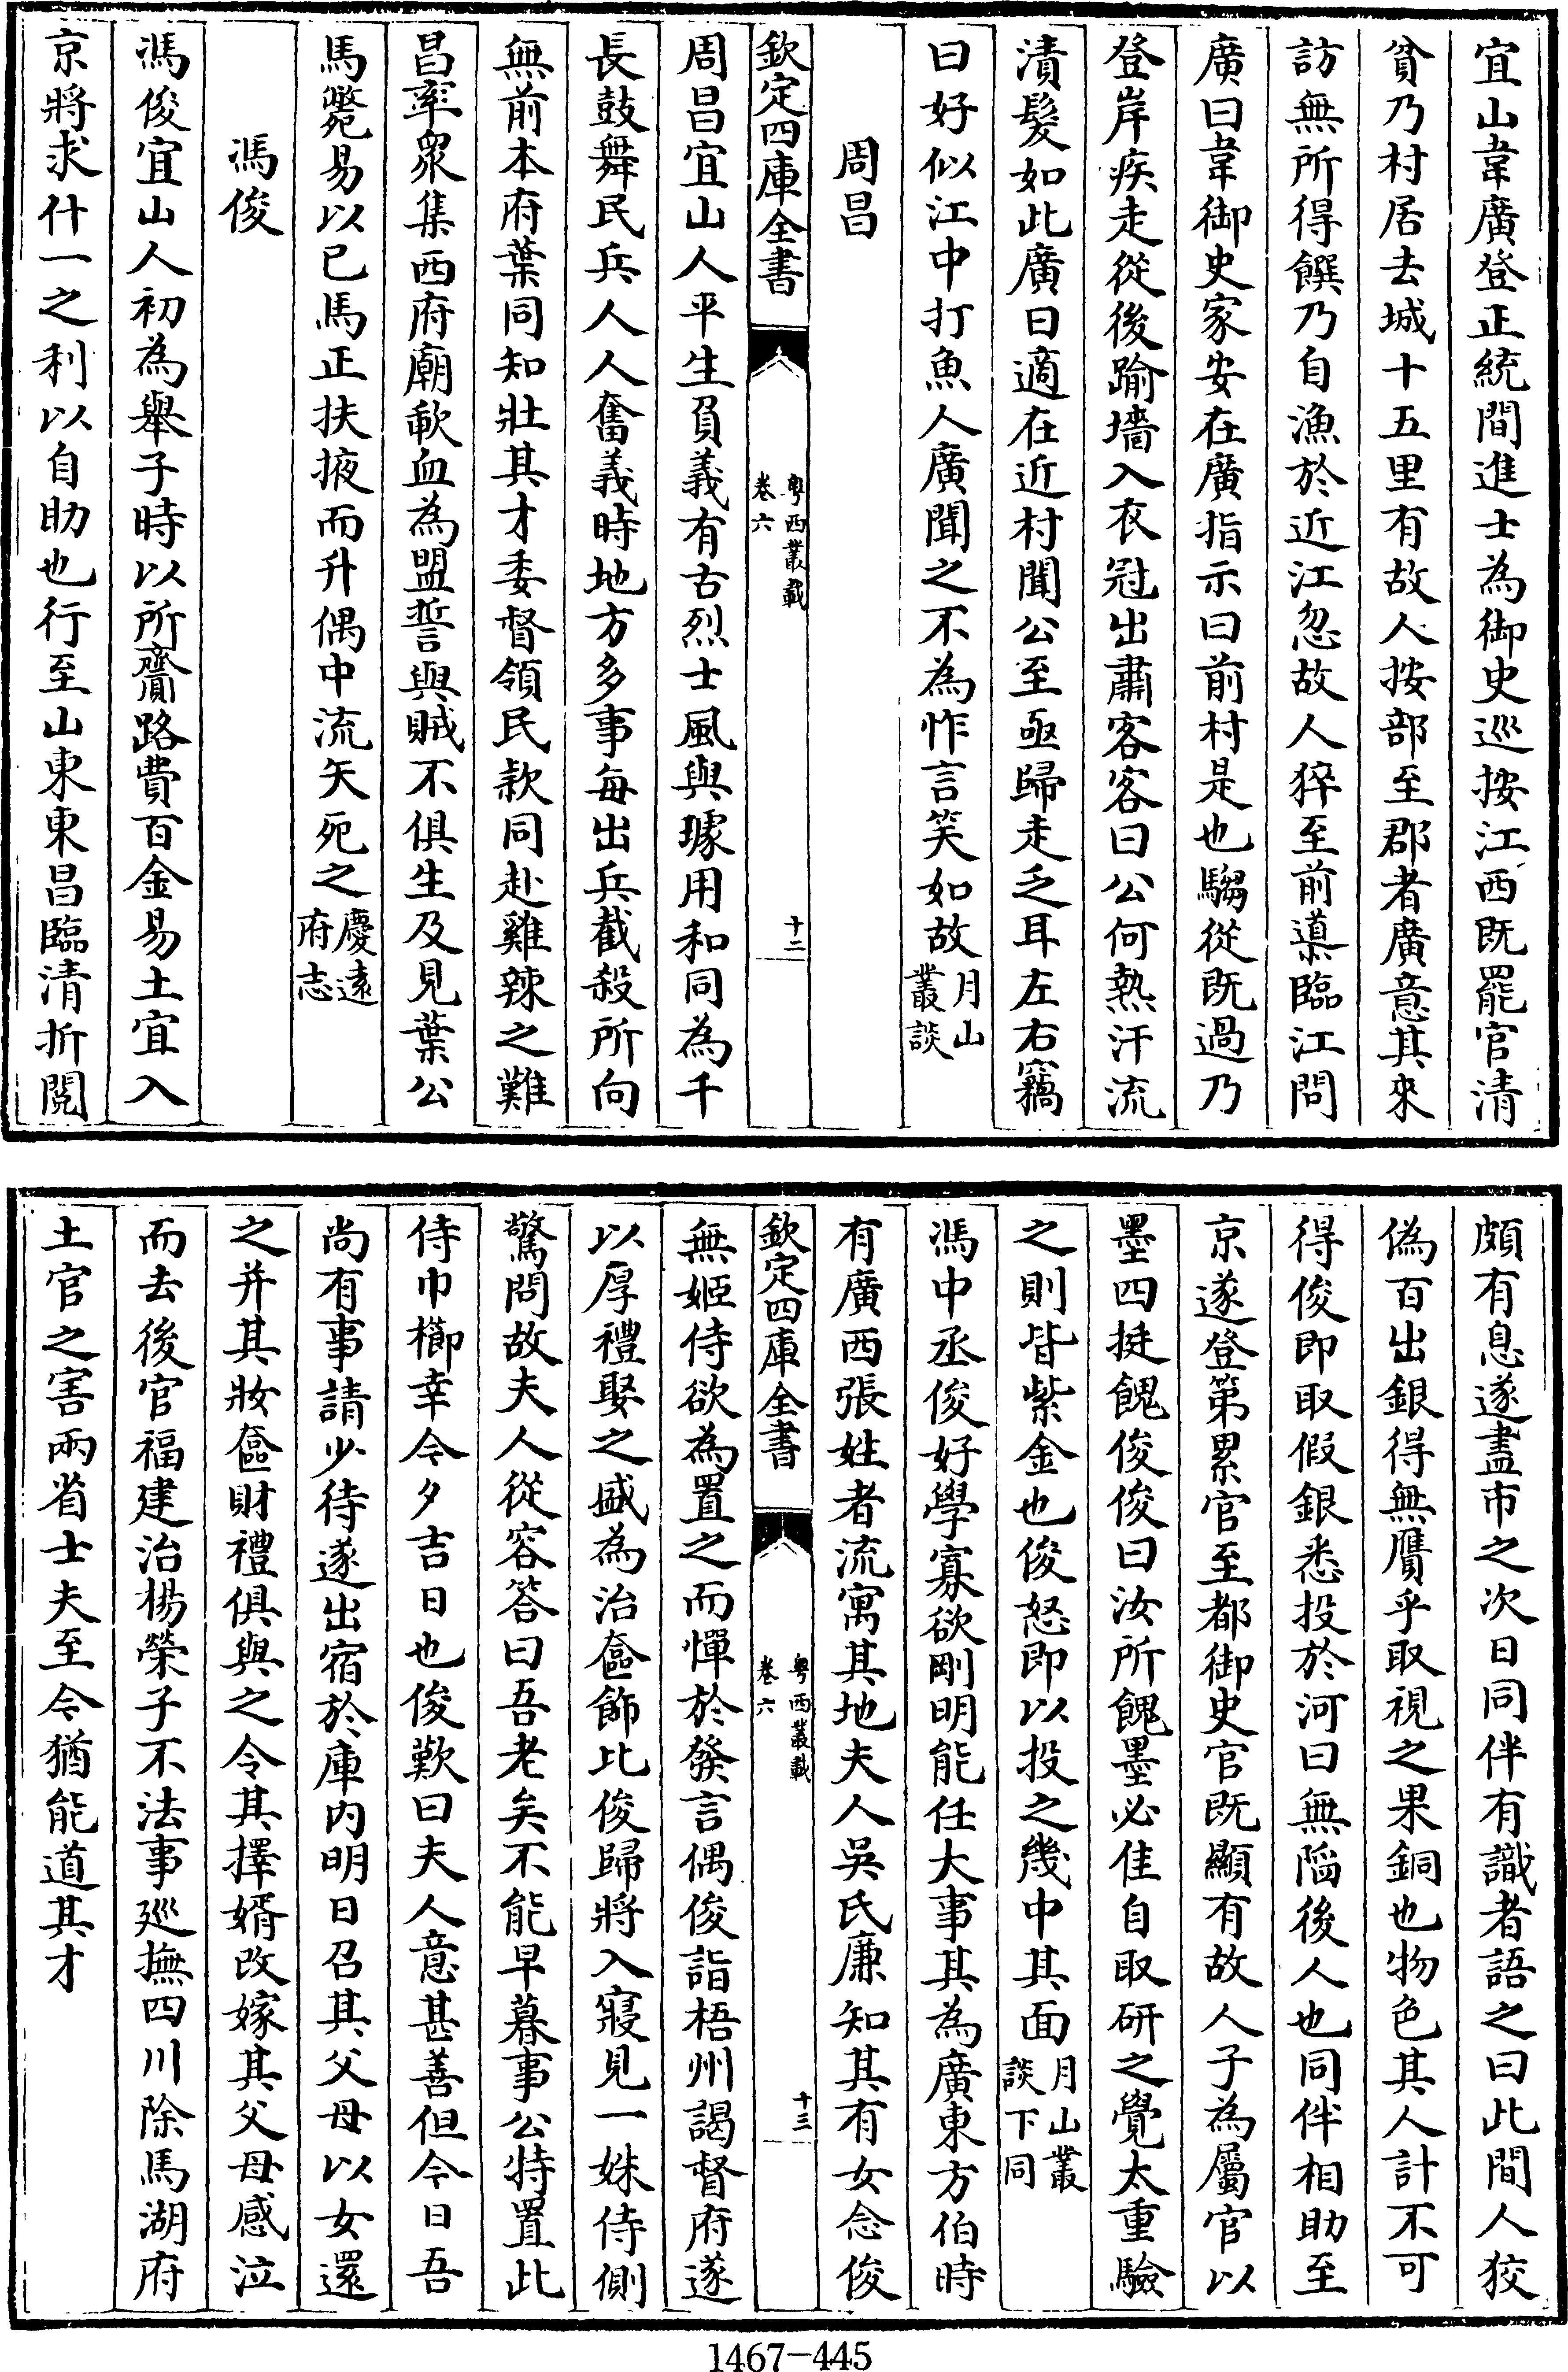 宜山韋廣登正統間進士為御史巡按江西既罷官清
貧乃村居去城十五里有故人按部至郡者廣意其來
訪無所得饌乃自漁於近江忽故人猝至前導臨江問
廣曰韋御史家安在廣指示曰前村是也騶從既過乃
登岸疾走從後踰墻入衣冠出肅客客曰公何熱汗流
漬髮如此廣曰適在近村聞公至亟歸走乏耳左右竊
曰好似江中打魚人廣聞之不為怍言笑如故月山叢談
周昌
欽定四庫全書
粤西叢載
卷六
十二
周昌宜山人平生負義有古烈士風與璩用和同為千
長鼓舞民兵人人奮義時地方多事每出兵截殺所向
無前本府葉同知壯其才委督領民款同赴雞辣之難
昌率衆集西府廟歃血為盟誓與賊不俱生及見葉公
馬斃易以已馬正扶掖而升偶中流矢死之慶遠府志
馮俊
馮俊宜山人初為舉子時以所齎路費百金易土宜入
京將求什一之利以自助也行至山東東昌臨清折閱
頗有息遂盡市之次日同伴有識者語之曰此間人狡
偽百出銀得無贋乎取視之果銅也物色其人計不可
得俊即取假銀悉投於河曰無陷後人也同伴相助至
京遂登第累官至都御史官既顯有故人子為屬官以
墨四挺餽俊俊曰汝所餽墨必佳自取研之覺太重驗
之則皆紫金也俊怒即以投之幾中其面月山叢談下同
馮中丞俊好學寡欲剛明能任大事其為廣東方伯時
有廣西張姓者流寓其地夫人吳氏廉知其有女念俊
欽定四庫全書
粤西叢載
卷六
十三
無姬侍欲為置之而憚於發言偶俊詣梧州謁督府遂
以厚禮娶之盛為治奩飾比俊歸將入寢見一姝侍側
驚問故夫人從容答曰吾老矣不能早暮事公特置此
侍巾櫛幸今夕吉日也俊歎曰夫人意甚善但今日吾
尚有事請少待遂出宿於庫内明日召其父母以女還
之并其妝奩財禮俱與之令其擇婿改嫁其父母感泣
而去後官福建治楊榮子不法事廵撫四川除馬湖府
土官之害兩省士夫至今猶能道其才
1467-445